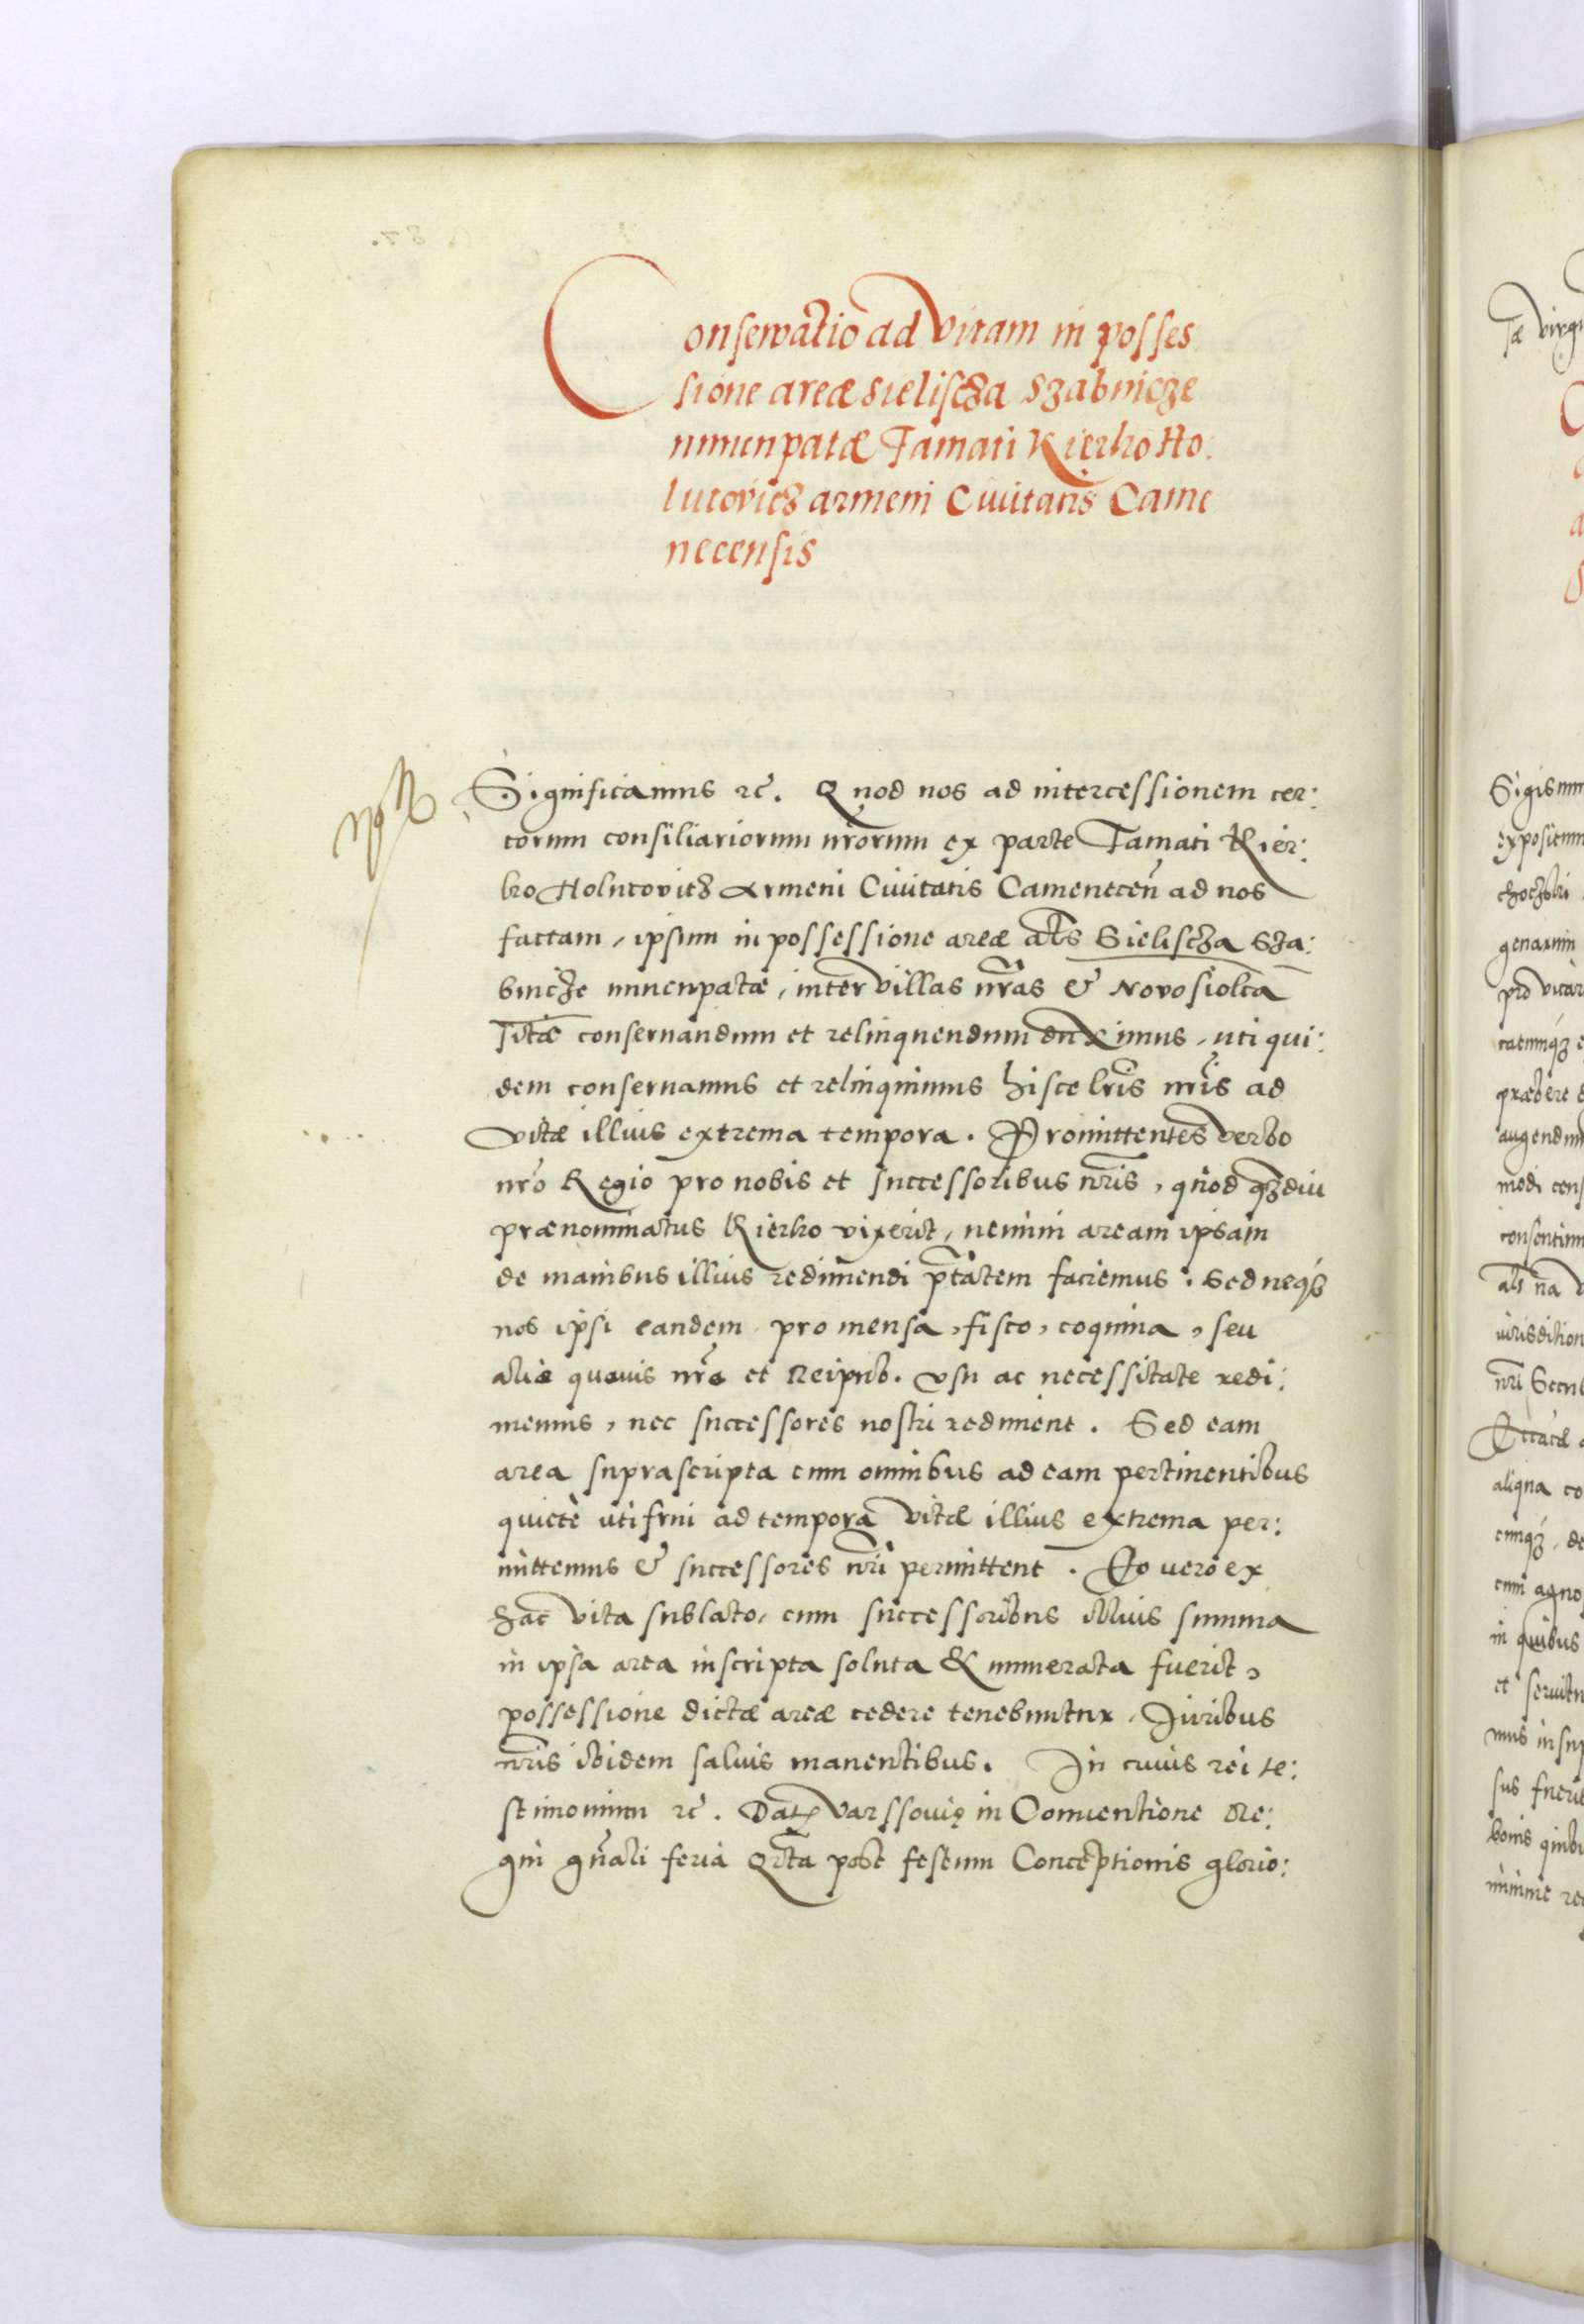 Conservatio ad vitam in posses
sione areæ Sielischa Szabnicze
nuncupatæ Jamati Kierko Ho:
lutovicz armeni Civitatis Came
necensis
Significamus rc̃. Quod nos ad intercessionem cer:
torum consiliariorum nr̃orum ex parte Jamati Kier:
ko Holutovicz Armeni Civitatis Camenecen̄ ad nos
factam, ipsum in possessione areæ al̃s Sielischa Sza:
bnicze nuncupatæ, inter villas nr̃as & Novosiolca
sitæ conservandum et relinquendum duximus, uti qui:
dem conservamus et relinquimus hisce lr̃is nr̃is ad
vitæ illius extrema tempora. Promittentes verbo
nr̃o Regio pro nobis et successoribus nr̃is, quod qzdiu
prænominatus Kierko vixerit, nemini aream ipsam
de manibus illius redimendi pt̃atem faciemus. Sed neqz
nos ipsi eandem pro mensa, fisco, coquina, seu
aliâ quavis nr̃a et Reipub. usu ac necessitate redi:
memus, nec successores nostri rediment. Sed eam
area suprascripta cum omnibus ad eam pertinentibus
quietè uti frui ad tempora vitæ illius extrema per:
mittemus & successores nr̃i permittent. Eo vero ex
hac vita sublato, cum successoribus illius summa
in ipsa area inscripta soluta & numerata fuerit,
possessione dictæ areæ cedere tenebuntur, Juribus
nr̃is ibidem salvis manentibus. In cuius rei te:
stimonium rc̃. Dat. Varssovię in Conventione Re:
gni gn̄ali feria Qr̃ta post festum Conceptionis glorio: